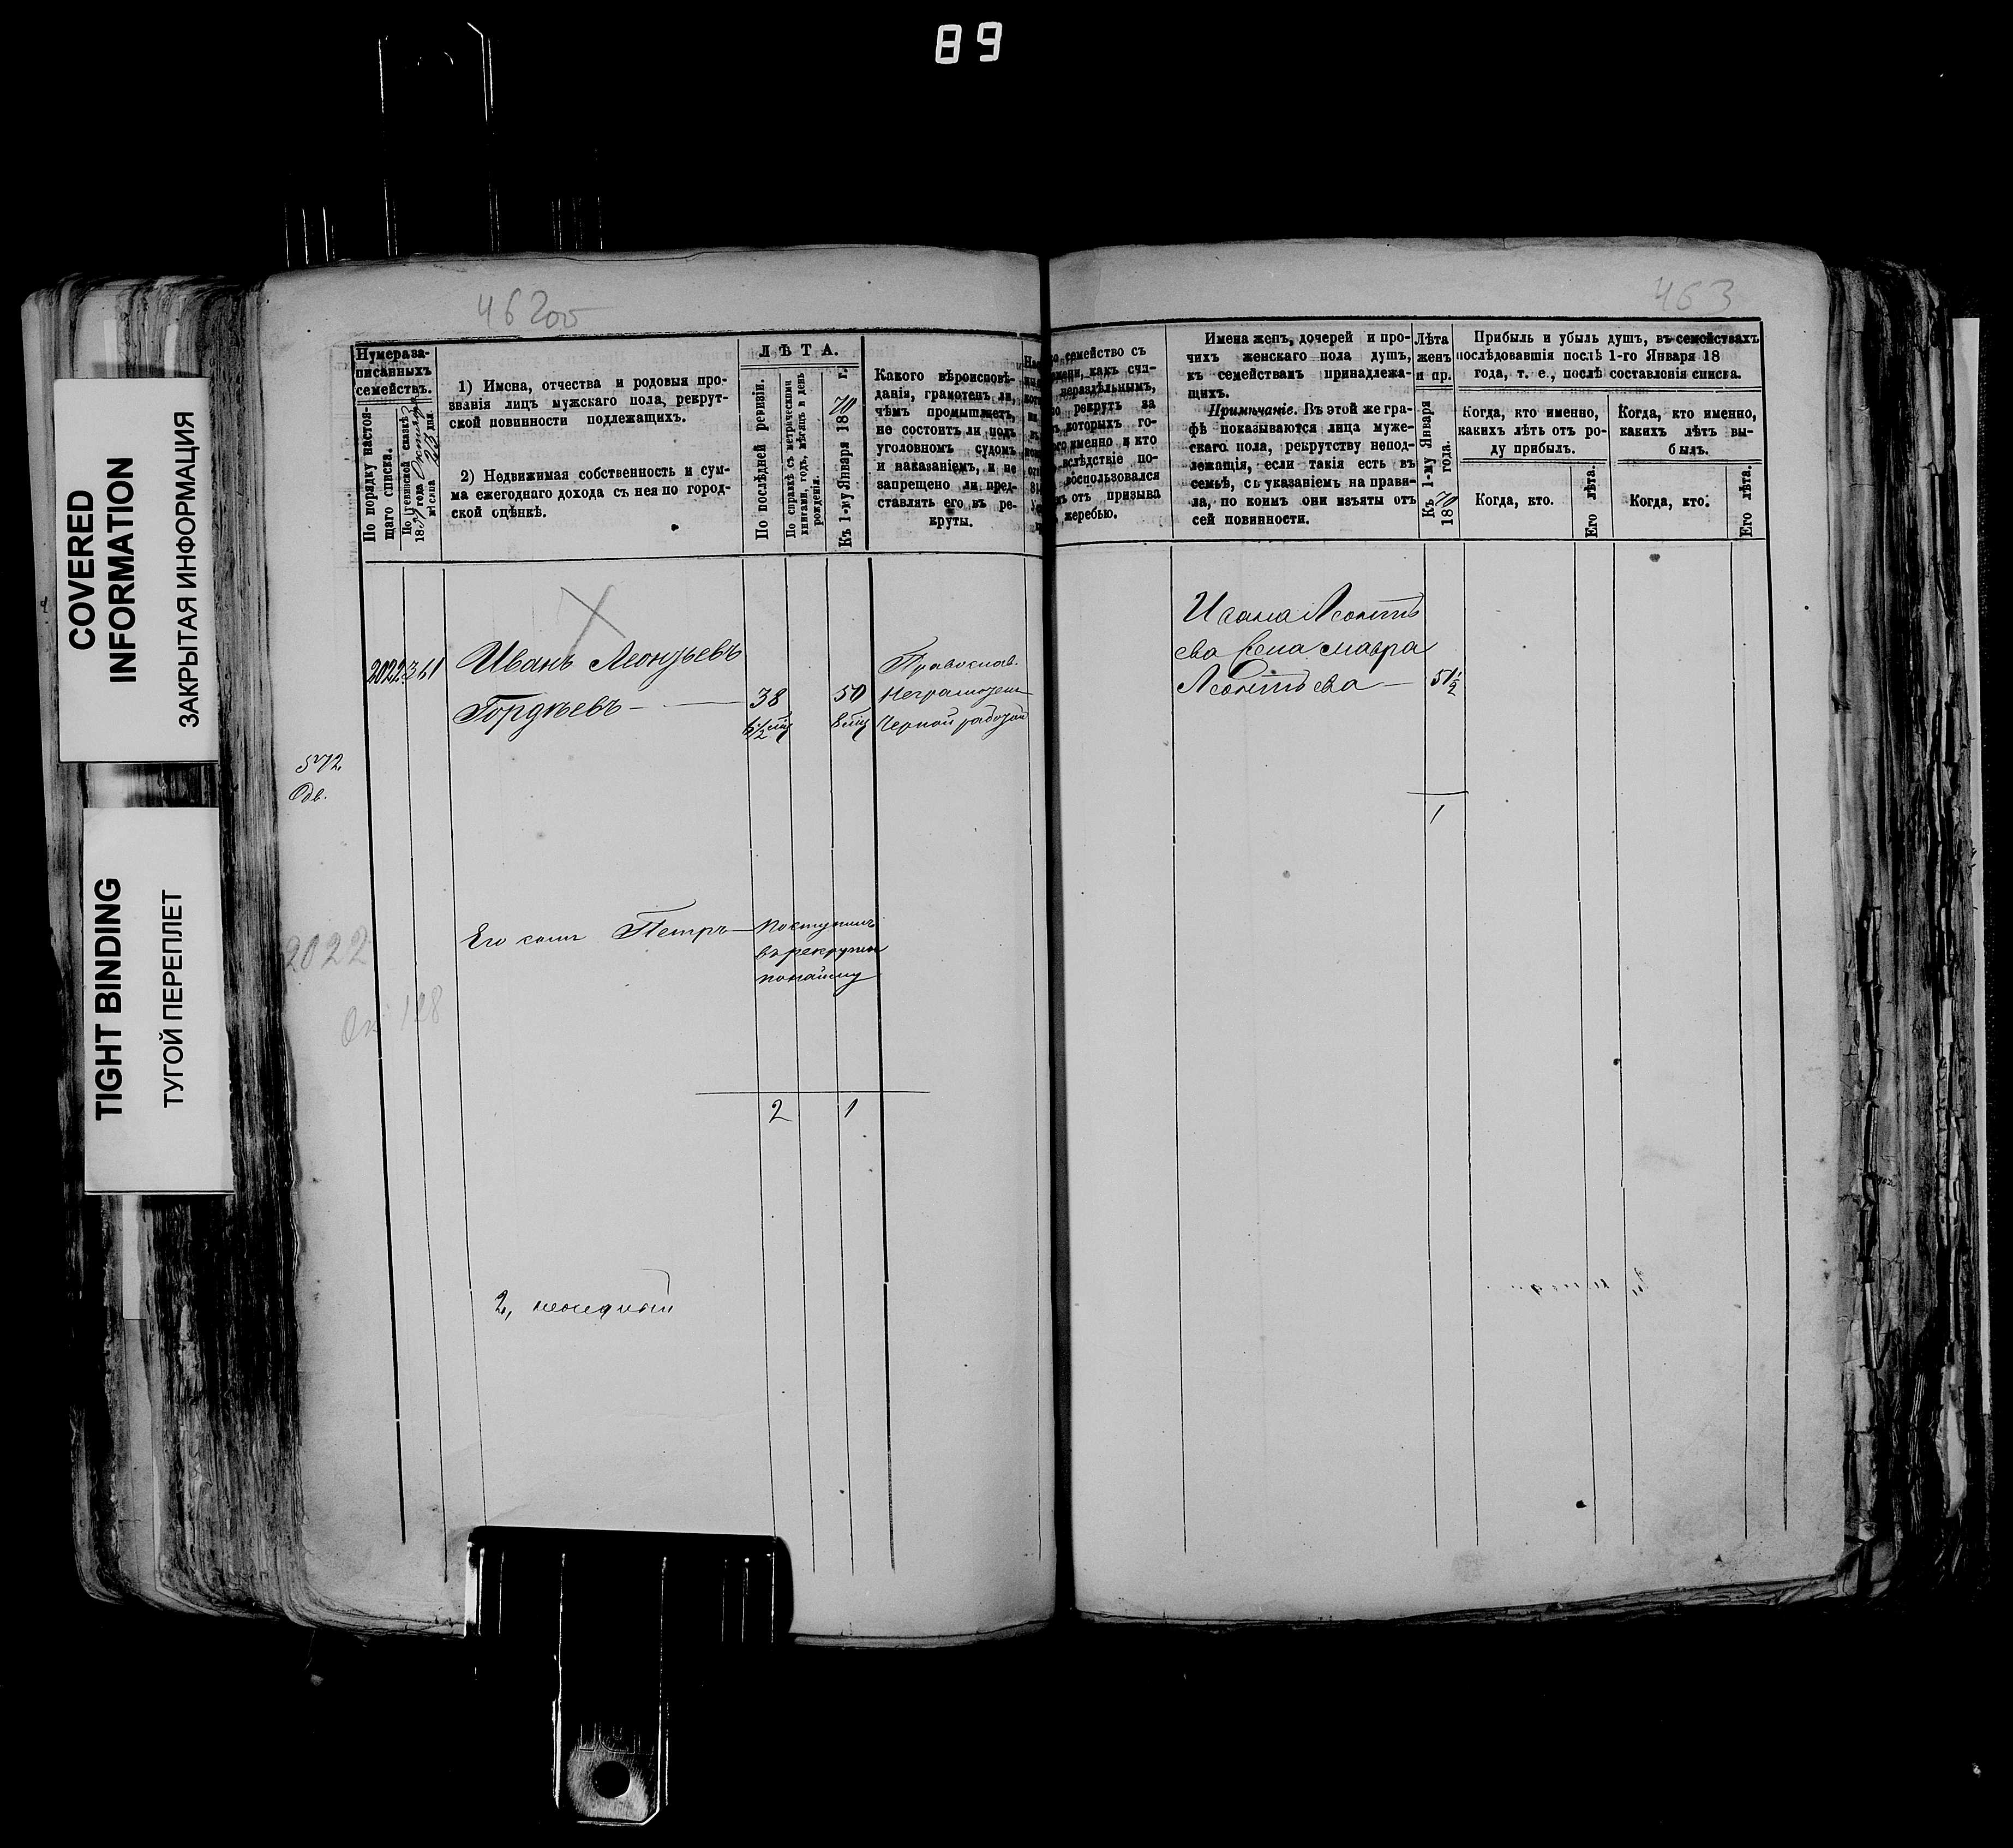 89
COVERED
INFORMATION
ЗАКРЫТАЯ ИНФОРМАЦИЯ
TIGHT BINDING
ТУГОЙ ПЕРЕПЛЕТ
462об
Нумера за-
писанныхъ
семействъ.
По порядку настоя-
щаго списка.
По ревизской сказкѣ
18 года Октября
мѣсяца 23 дня
1) Имена, отчества и родовыя про-
званія лицъ мужскаго пола, рекрут-
ской повинности подлежащихъ.
2) Недвижимая собственность и сум-
ма ежегоднаго дохода съ нея по город-
ской оцѣнкѣ.
ЛѢТА.
По послѣдней ревизіи.
По справкѣ съ метрическими
книгами, годъ, мѣсяцъ и день
рожденія.
Къ 1-му Января 1870 г.
Какого вѣроисповѣ-
данія, грамотенъ ли,
чѣмъ промышляетъ,
не состоитъ ли подъ
уголовномъ судомъ
и наказаніемъ, и не
запрещено ли пред-
ставлять его въ ре-
круты.
2022 361
Иванъ Леонтьевъ
Гордѣевъ
38
6½ мц
50
8 мц
Православ.
Неграмотен
Черной работой
572
Одв.
Его сынъ Петръ
Поступилъ
въ рекруты
по найму
2022
128
2 1
2,
463
семейство съ
какъ счи-
нераздѣльнымъ,
рекрутъ за
которыхъ го-
именно и кто
вслѣдствіе по-
воспользовался
отъ призыва
жеребью.
Имена женъ, дочерей и про-
чихъ женскаго пола душъ,
къ семействамъ принадлежа-
щихъ.
Примѣчаніе. Въ этой же гра-
фѣ показываются лица муже-
скаго пола, рекрутству непод-
лежащія, если такія есть въ
семьѣ, съ указаніемъ на прави-
ла, по коимъ они изъяты отъ
сей повинности.
Лѣта
женъ
и пр.
Къ 1-му Января
1870 года.
Прибыль и убыль душъ, въ семействахъ
послѣдовавшія послѣ 1-го Января 18
года, т. е., послѣ составленія списка.
Когда, кто именно,
какихъ лѣтъ отъ ро-
ду прибылъ.
Когда, кто именно,
какихъ лѣтъ вы-
былъ.
Когда, кто.
Его лѣта.
Когда, кто.
Его лѣта.
Ивана Леонть
ева жена Мавра
Леонтьева
51½
1